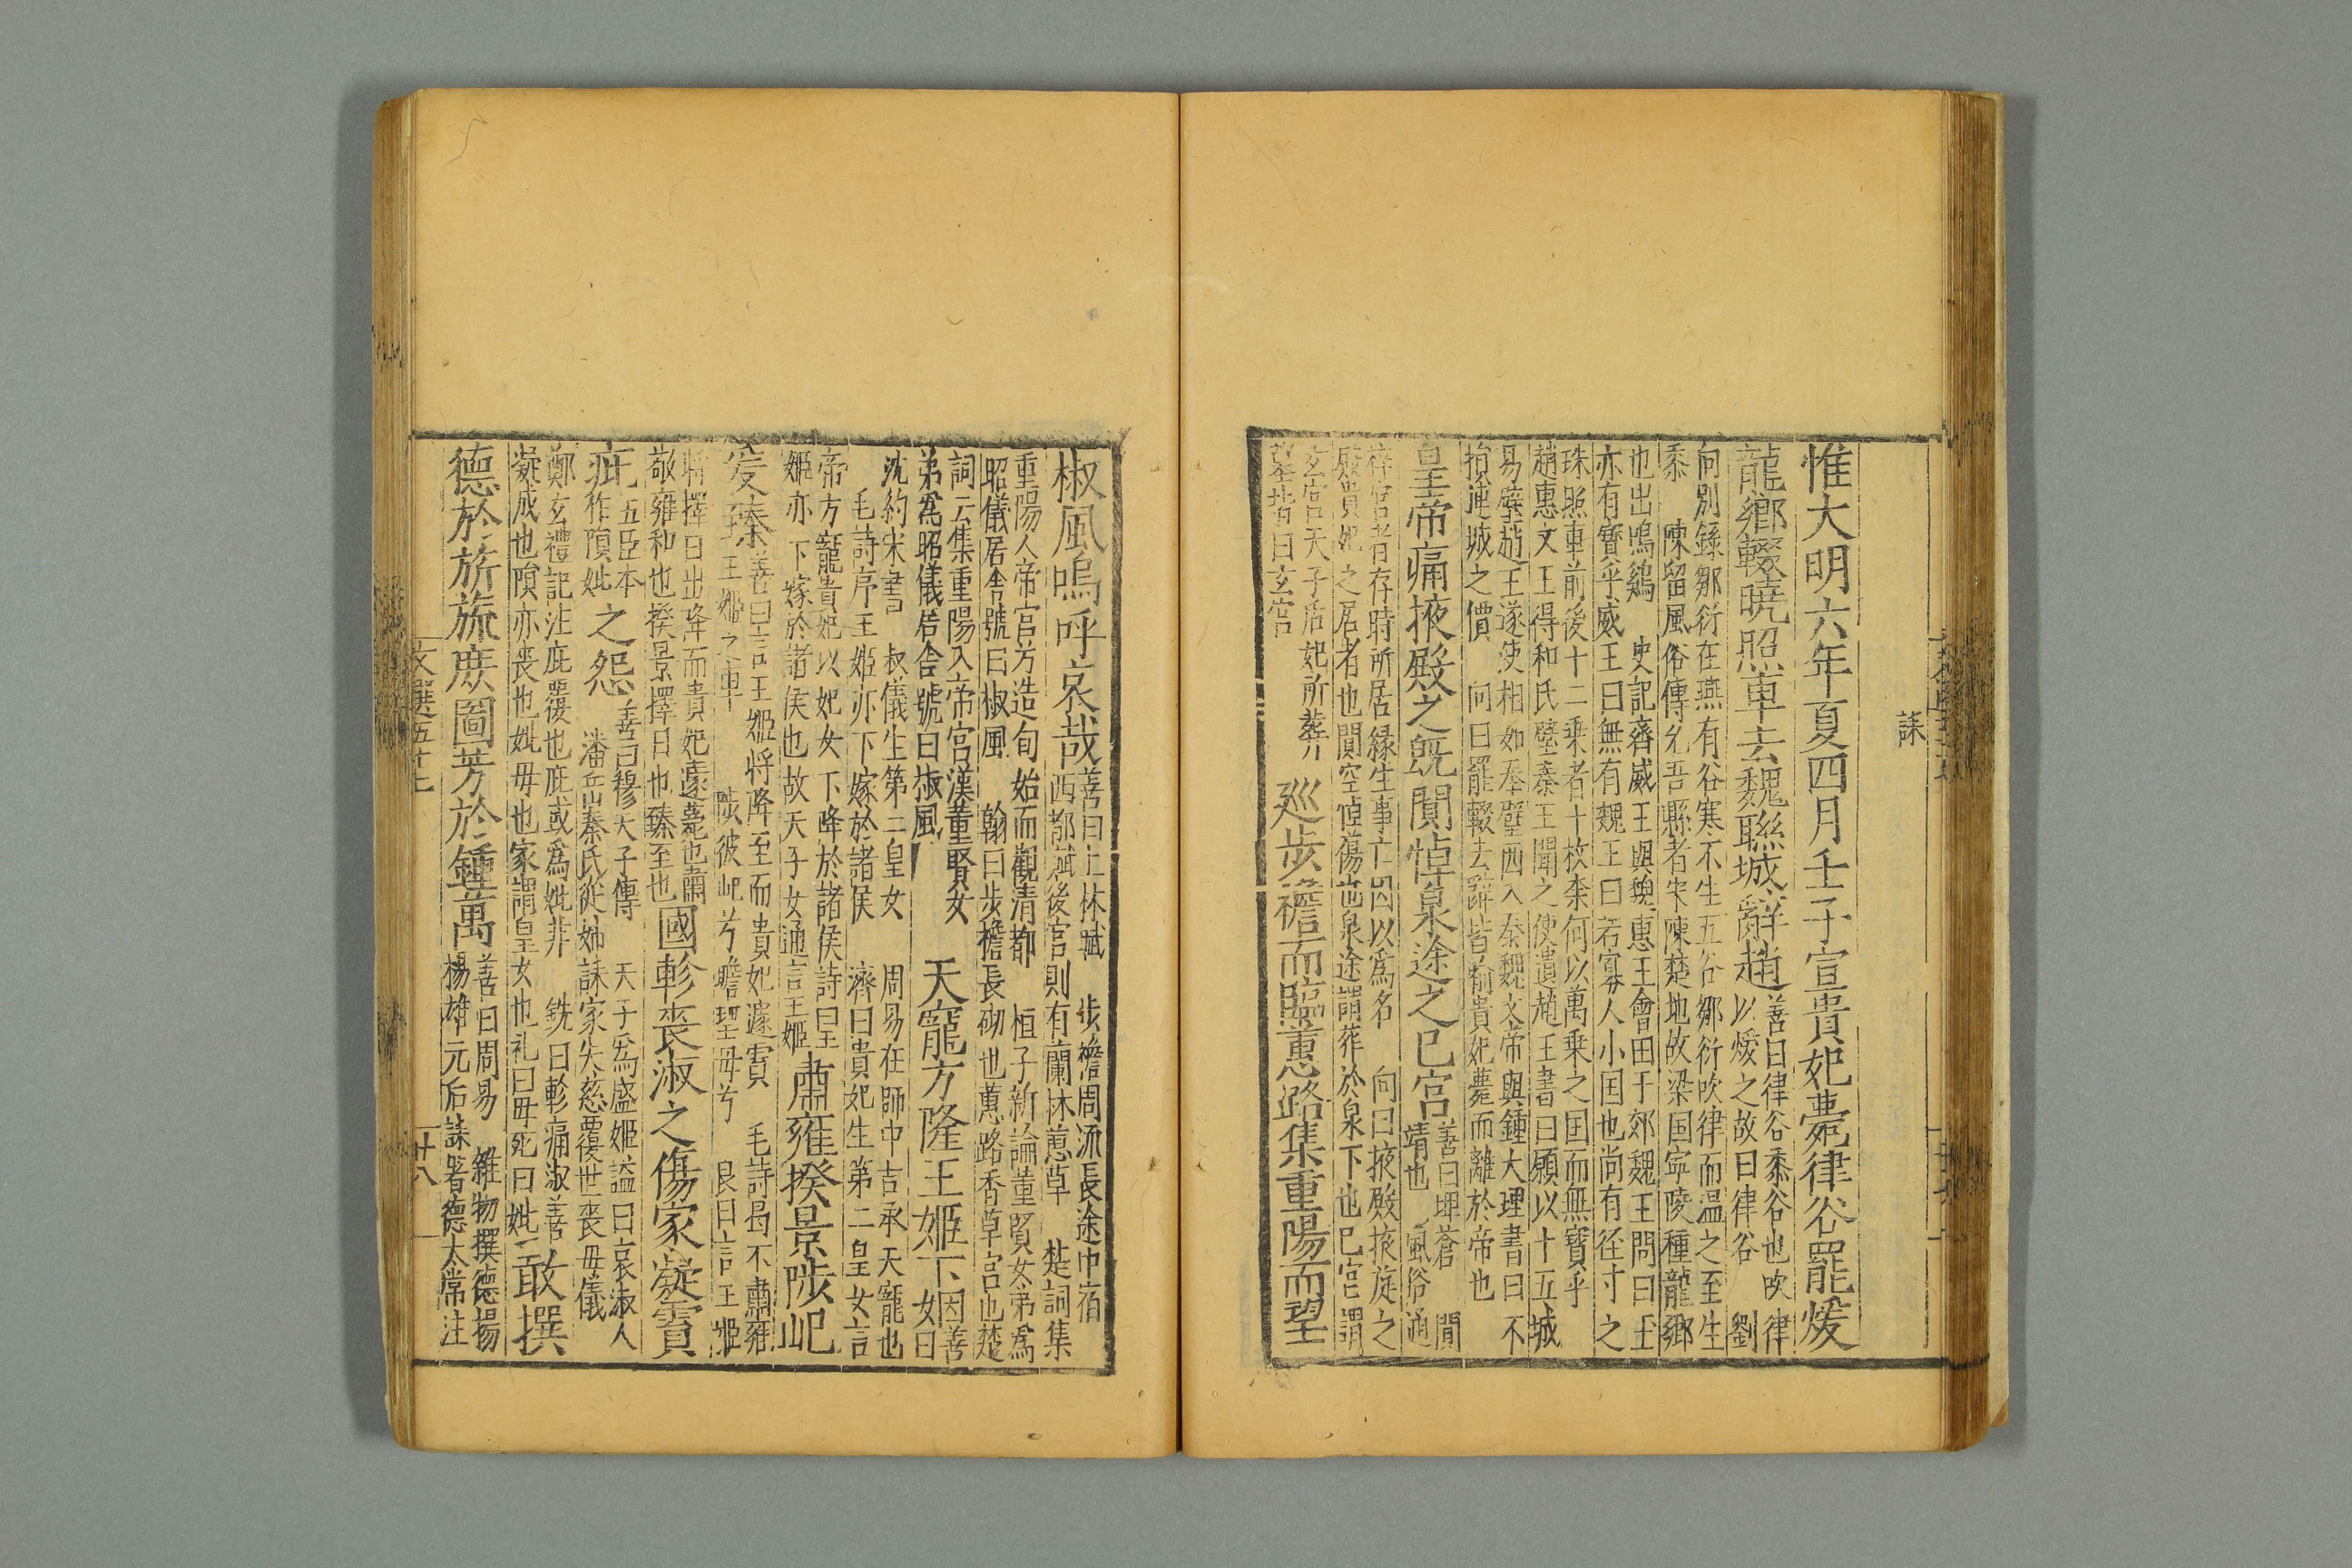 誄
惟大明六年夏四月壬子宣貴妃薨律谷罷煖
龍鄉輟曉照車去魏聯城辭趙善曰律谷黍谷也吹律
以煖之故曰律谷劉
向別錄鄒衍在燕有谷寒不生五谷鄒衍吹律而温之至生
黍 陳留風俗傳允吾縣者宋陳楚地故梁国寜陵種龍鄉
也出鳴鷄 史記齊威王與魏惠王會田于郊魏王問曰王
亦有寶乎威王曰無有魏王曰若寡人小国也尚有径寸之
珠照車前後十二乗者十枚柰何以萬乗之国而無寳乎
趙惠文王得和氏璧秦王聞之使遺趙王書曰願以十五城
易璧趙王遂使相如奉璧西入秦魏文帝與鍾大理書曰不
損連城之價 向曰罷輟去辭皆喻貴妃薨而離於帝也
皇帝痛掖殿之旣闃悼泉途之已宮善曰埤蒼 闃
靖也 風俗通
梓宫者存時所居緣生事亡因以為名 向曰掖殿掖庭之
殿貴妃之居者也闃空悼傷也泉途謂葬於泉下也已宫謂
玄宫天子后妃所葬
墓皆曰玄宫巡步櫩而臨蕙路集重陽而望
椒風嗚呼哀哉善曰上林賦 步櫩周流長途中宿
西都賦後宫則有蘭林蕙草 楚詞集
重陽入帝宫芳造旬始而觀清都 桓子新論董賢女弟為
昭儀居舍號曰椒風 翰曰步櫩長砌也蕙路香草宫也楚
詞云集重陽入帝宫漢董賢女
弟爲昭儀居舍號曰椒風天寵方隆王姬下因善
女曰
沈約宋書 叔儀生第二皇女 周易在師中吉承天寵也
毛詩序王姬亦下嫁於諸侯 濟曰貴妃生第二皇女言
帝方寵貴妃以妃女下降於諸侯詩曰王
姬亦下嫁於諸侯也故天子女通言王姬肅雍揆景陟屺
爰臻善曰言王姬將降至而貴妃遽霣 毛詩曷不肅雍
王姬之車 陟彼屺兮瞻望毋兮 良曰言王姬
將擇日出降而貴妃遽薨也肅
敬雍和也揆景擇日也臻至也國軫喪淑之傷家凝霣
庇五臣本
作隕妣之怨善曰穆天子傳 天子為盛姬謚曰哀淑人
潘岳秦氏從姊誄家失慈覆世喪毋儀
鄭玄禮記注庇覆也庇或為妣非 銑曰軫痛淑善
凝成也隕亦喪也妣毋也家謂皇女也礼曰毋死曰妣敢撰
德於旂旒庶圖芳於鍾萬善曰周易 雜物撰德揚
楊雄元后誄著德太常注
文選五十七
廿八